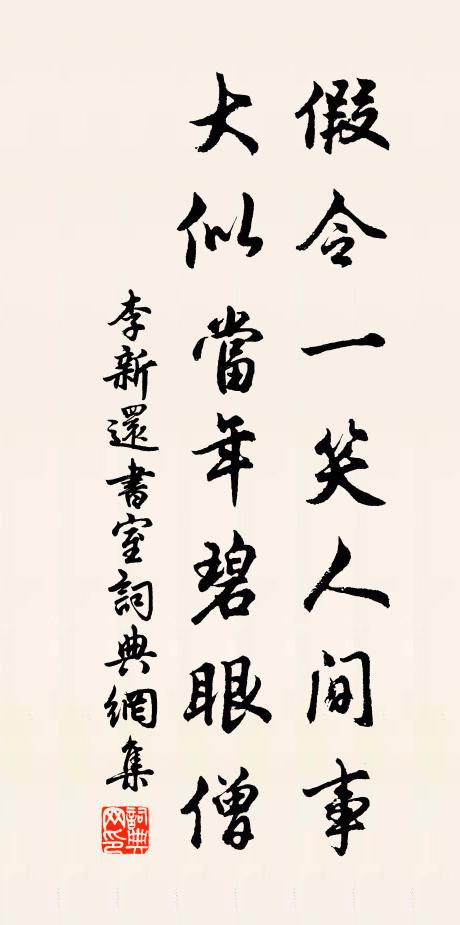 假令一笑人间事
大似當年碧眼僧
李新還書室詞典網集
詞典網印